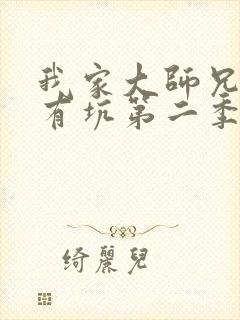 我家大師兄
有坑第二季
綺麗兒